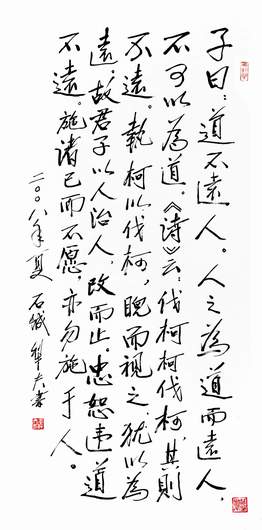 子曰：道不遠人。人之為道而遠人，
不可以為道。《詩》云：伐柯伐柯，其則
不遠。執柯以伐柯，睨而視之，猶以為
遠。故君子以人治人，改而止。忠恕违道
不遠。施诸己而不愿，亦勿施于人。
二〇〇八年夏 石缄